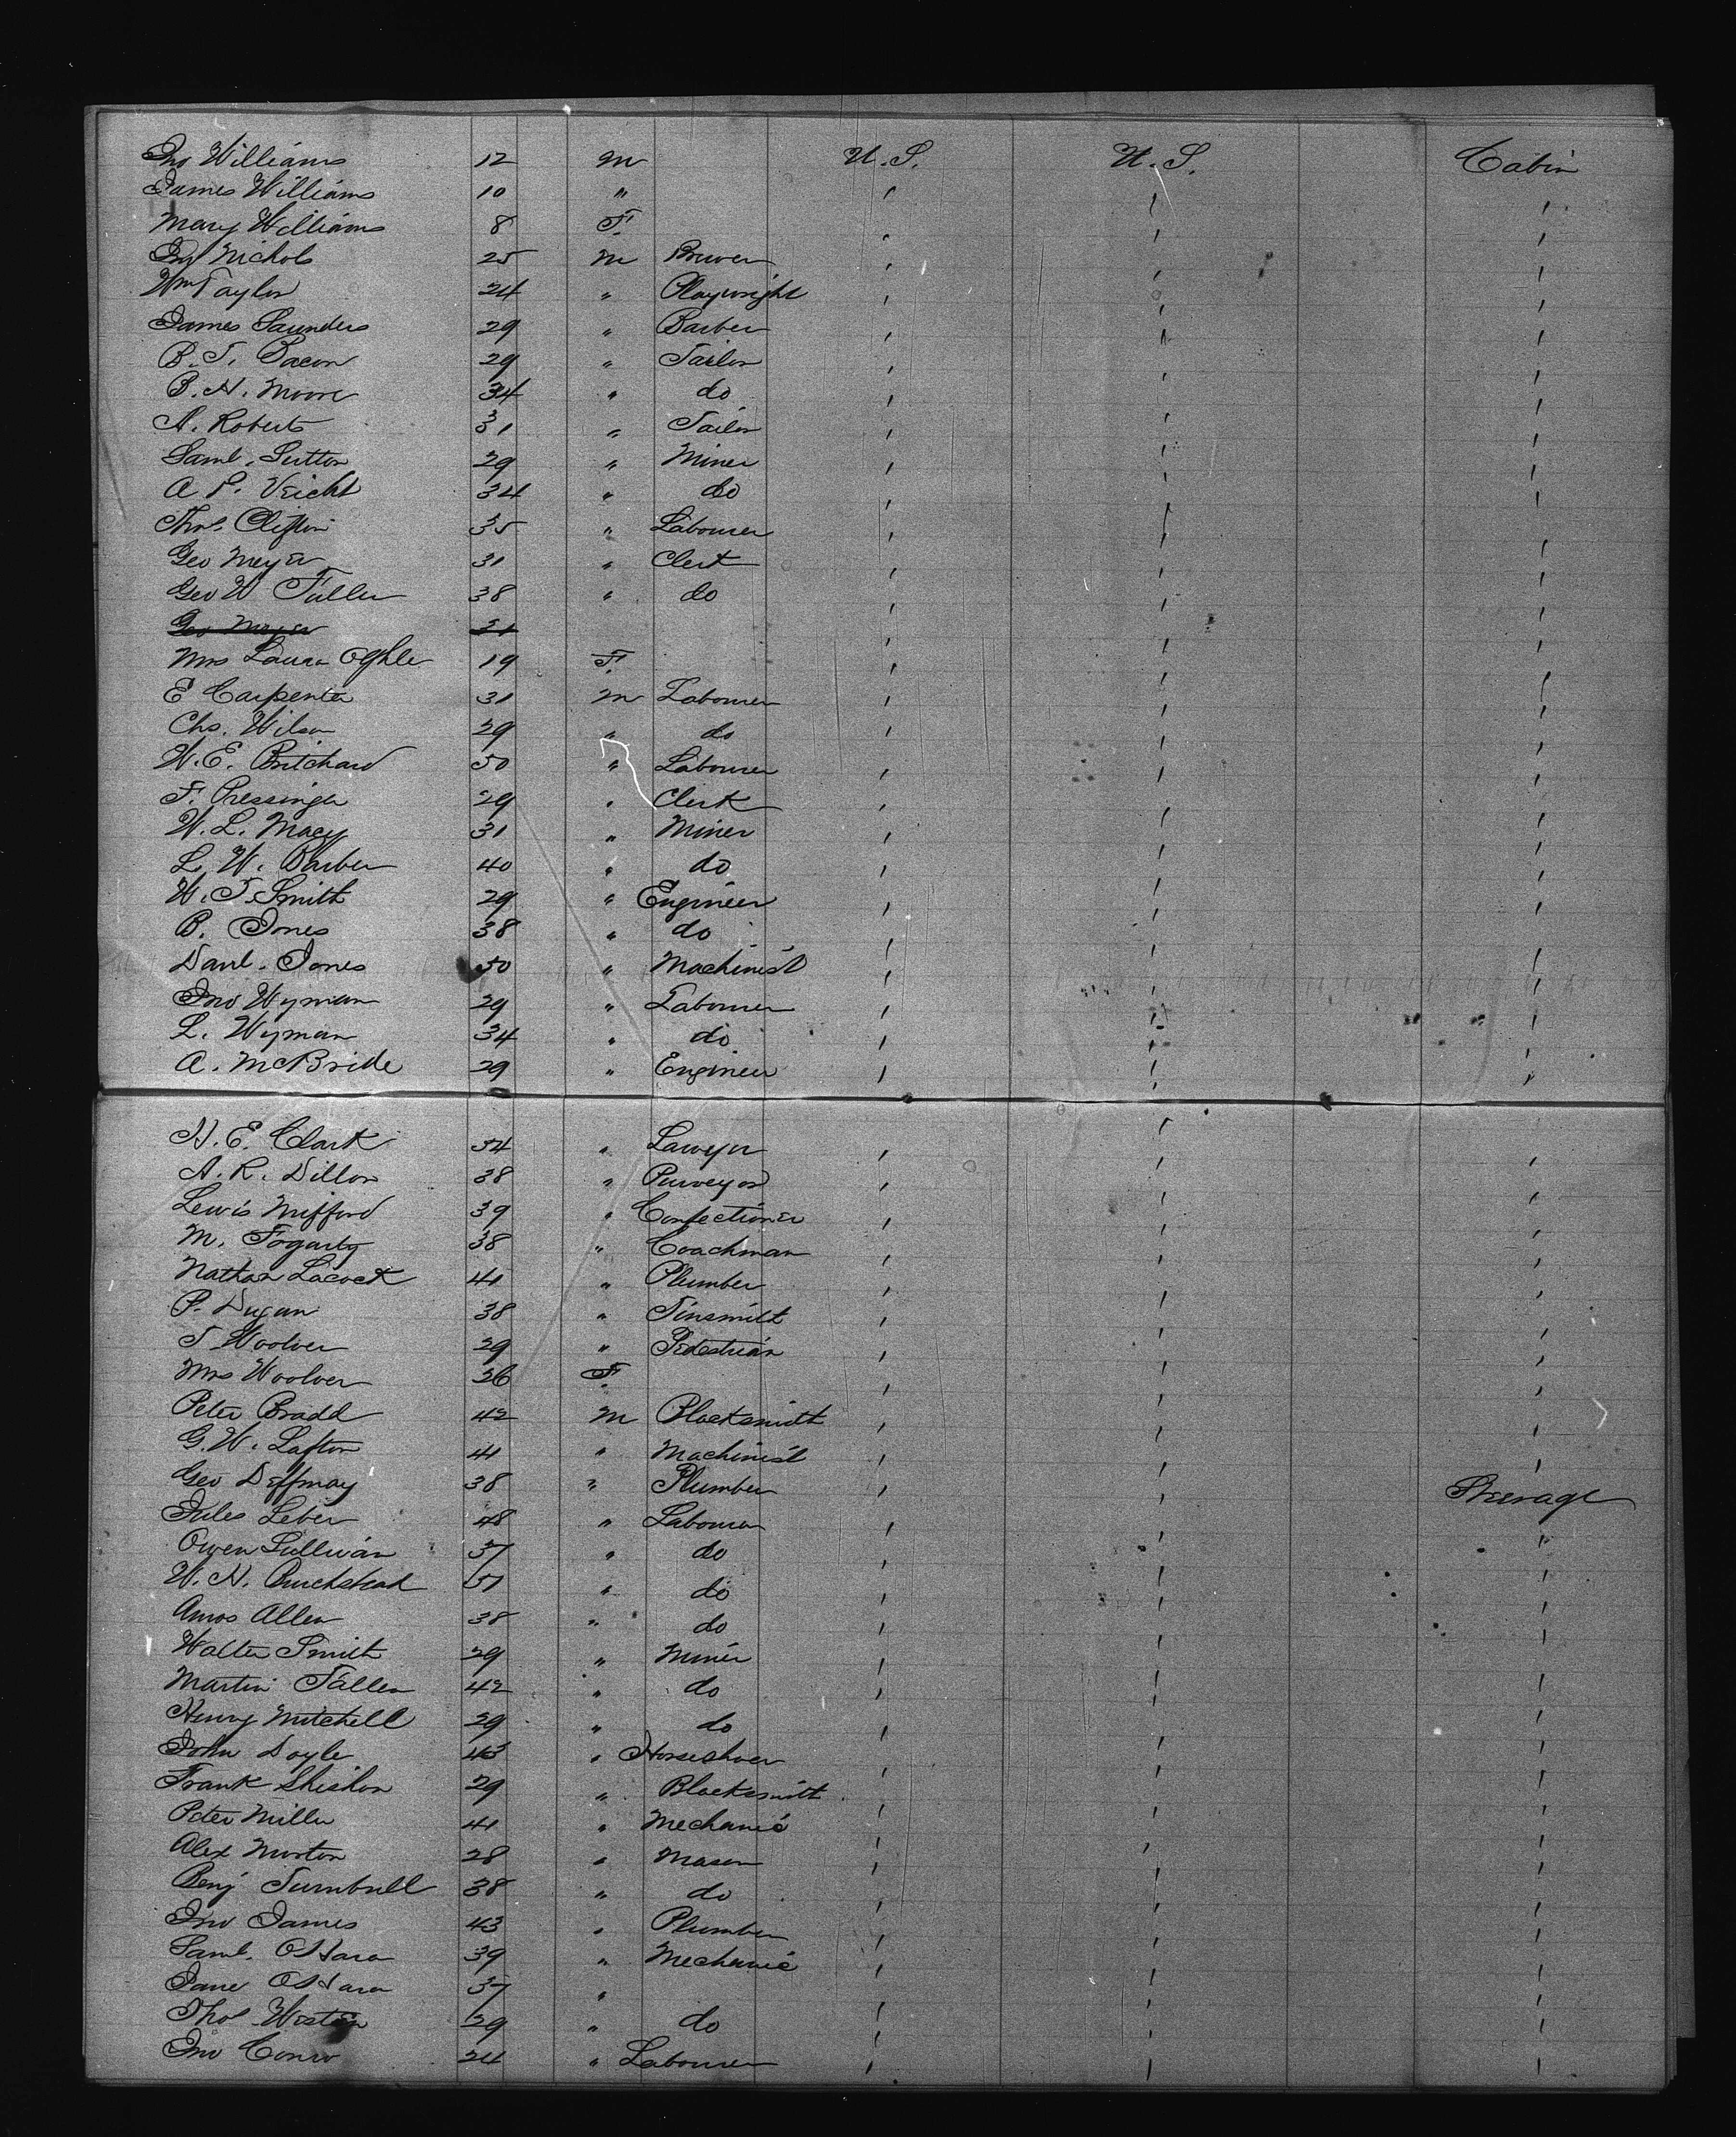 Jno Williams 12 M U.S. U.S. Cabin
James Williams 10 " ' ' '
Mary Williams 8 F. ' ' '
Jno Nichols 25 M Brewer ' ' '
Wm Taylor 24 " Playwright ' ' '
James Saunders 29 " Barber ' ' '
B. T. Bacon 29 " Tailor ' ' '
B. H. Moore 34 " do ' ' '
A. Roberts 31 " Tailor ' ' '
Saml. Sutton 29 " Miner ' ' '
A P. Veicht 34 " do ' ' '
Thos. Clifton 35 " Labourer ' ' '
Geo Meyer 31 " Clerk ' ' '
Geo W Fuller 38 " do ' ' '
Geo Meyer 31
Mrs Laura 19 F. ' ' '
E Carpenter 31 M Labourer ' ' '
Chs. Wilson 29 " do ' ' '
W. E. Pritchard 50 " Labourer ' ' '
F. Pressinger 29 " Clerk ' ' '
W. L. Macy 31 " Miner ' ' '
L. W. Barber 40 " do ' ' '
W. T. Smith 29 " Engineer ' ' '
B. Jones 38 " do ' ' '
Danl. Jones 50 " Machinist ' ' '
Jno Wyman 29 " Labourer ' ' '
L. Wyman 34 " do ' ' '
A. McBride 29 " Engineer ' ' '
H. E. Clark 34 " Lawyer ' ' '
A. R. Dillon 38 " Purveyor ' ' '
Lewis Mifford 39 " Confectioner ' ' '
M. Fogarty 38 " Coachman ' ' '
Nathan Lacock 41 " Plumber ' ' '
P. Dugan 38 " Tinsmith ' ' '
T Woolver 29 " Pedestrian ' ' '
Mrs Woolver 26 F. ' ' '
Peter Bradd 42 M Blacksmith ' ' '
G. W. Lafton 41 " Machinist ' ' '
Geo Deffmay 38 " Plumber ' ' Steerage
Jules Leber 48 " Labourer ' ' '
Owen Sullivan 37 " do ' ' '
W. H. 51 " do ' ' '
Amos Allen 38 " do ' ' '
Walter Smith 29 " Miner ' ' '
Martin Fallen 42 " do ' ' '
Henry Mitchell 29 " do ' ' '
John Doyle 43 " Horseshoer ' ' '
Frank 29 " Blacksmith ' ' '
Peter Miller 41 " Mechanic ' ' '
Alex Morton 28 " Mason ' ' '
Benj Turnbull 38 " do ' ' '
Jno James 43 " Plumber ' ' '
Saml. O'Hara 39 " Mechanic ' ' '
Jane O'Hara 37 " ' ' '
Thos Weston 29 " do ' ' '
Jno Conro 24 " Labourer ' ' '